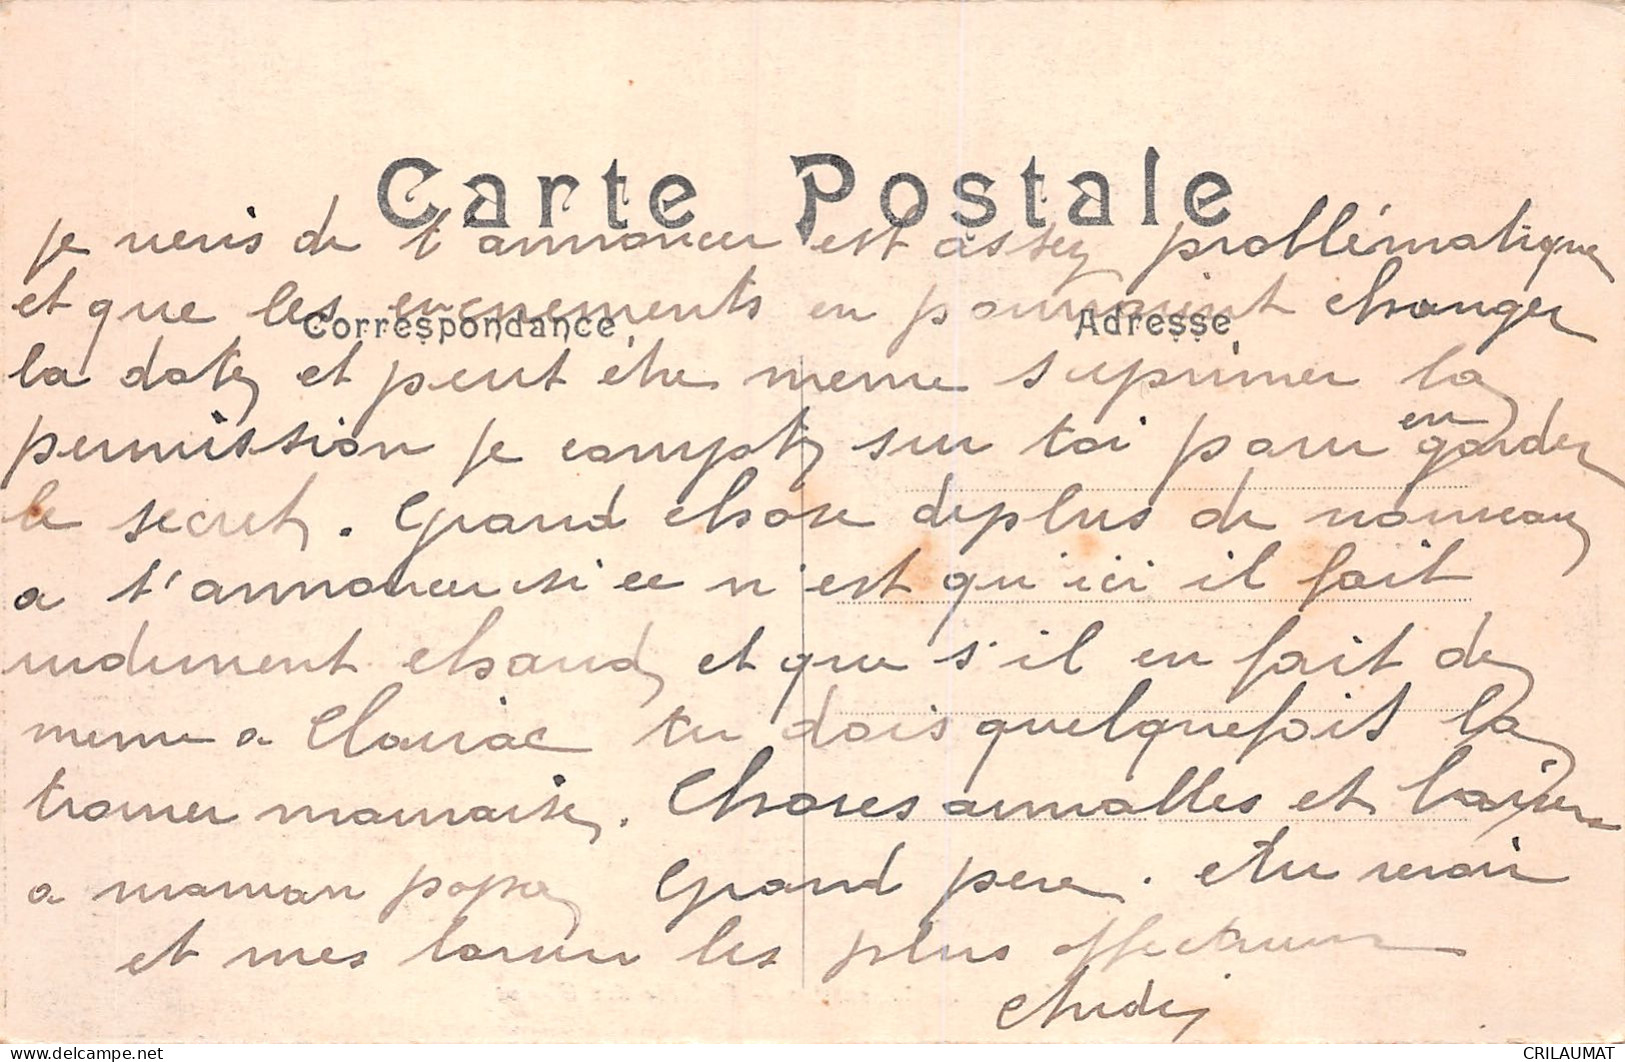 Carte Postale
je viens de t'annoncer est assez problématique
et que les evenements en pourraient changer
Correspondance
Adresse
la date et peut être meme suprimer la
permission je compte sur toi pour en garder
le secret. Grand chose deplus de nouveau
a t'annoncer si ce n'est qu'ici il fait
rudement chaud et que s'il en fait de
meme a Clairac tu dois quelquefois la
trouver mauvaise. Choses annalles et baiser
a maman papa Grand pere. Au revoir
et mes baiser les plus affectueux
CRILAUMAT